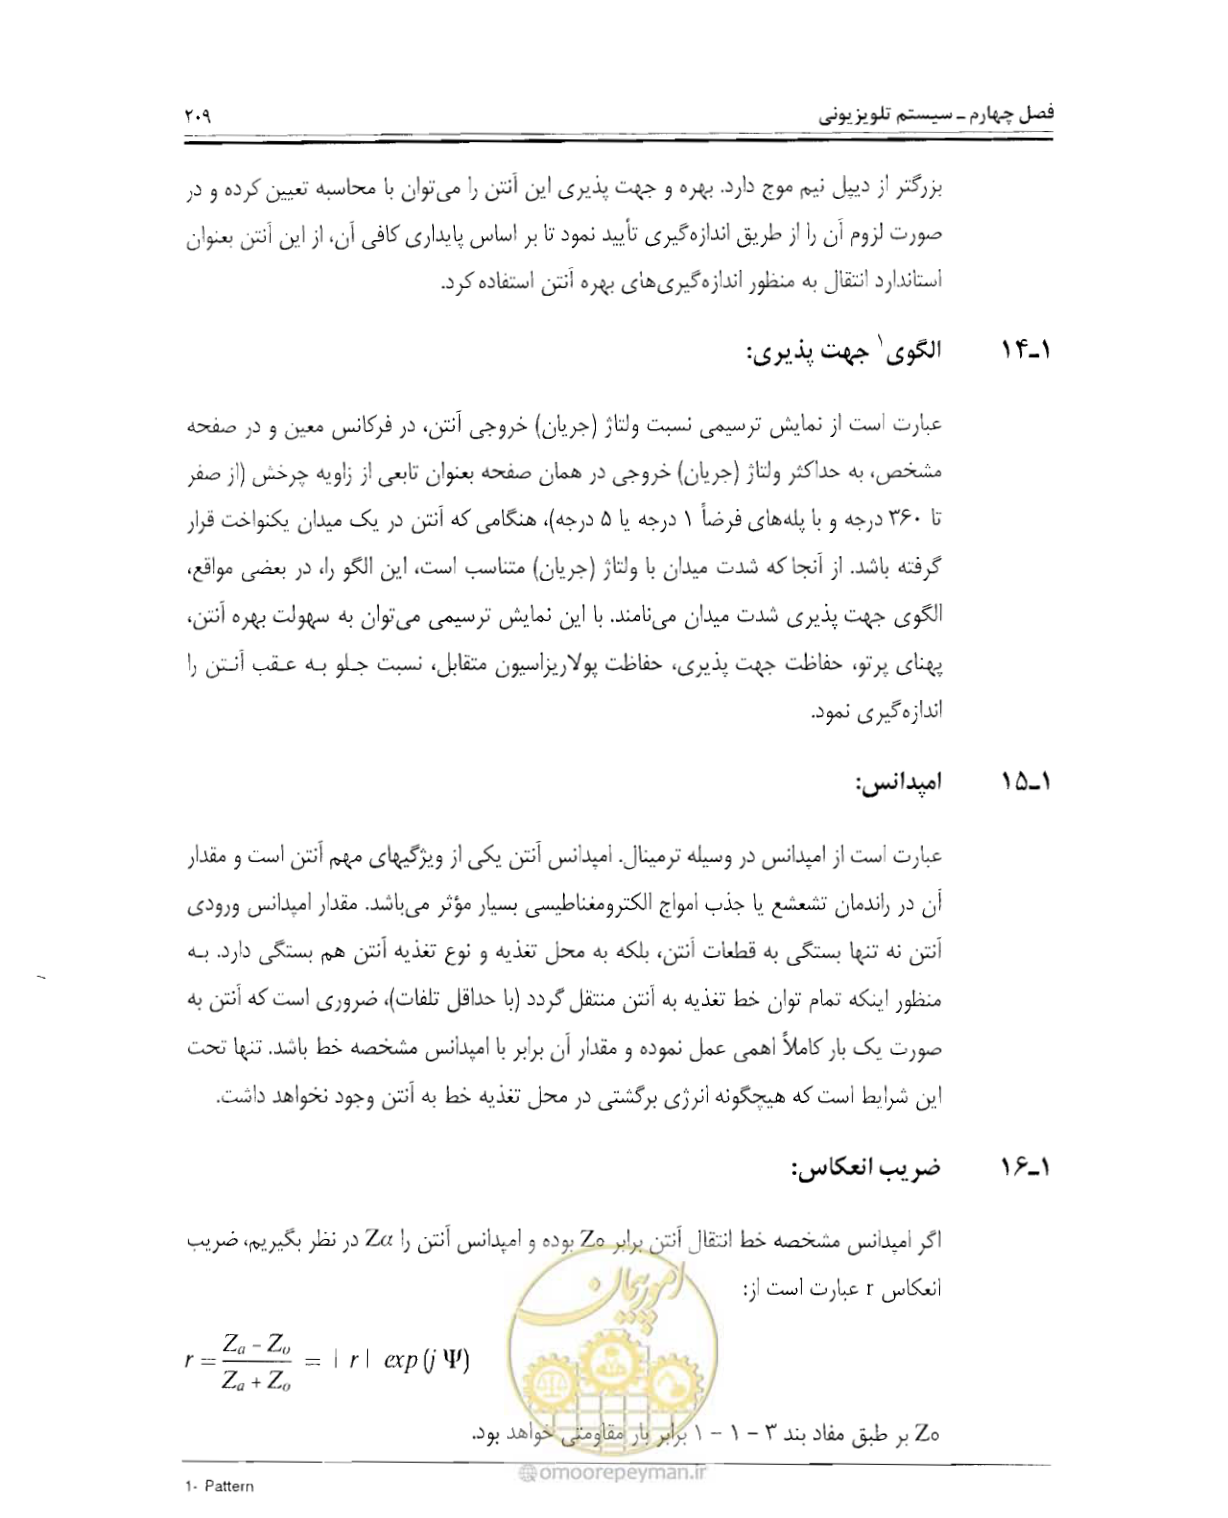 فصل چهارم ـ سیستم تلویزیونی ۲۰۹
بزرگتر از دیپل نیم موج دارد. بهره و جهت پذیری این آنتن را می‌توان با محاسبه تعیین کرده و در
صورت لزوم آن را از طریق اندازه‌گیری تأیید نمود تا بر اساس پایداری کافی آن، از این آنتن بعنوان
استاندارد انتقال به منظور اندازه‌گیری‌های بهره آنتن استفاده کرد.
۱ـ۱۴ الگوی۱ جهت پذیری:
عبارت است از نمایش ترسیمی نسبت ولتاژ (جریان) خروجی آنتن، در فرکانس معین و در صفحه
مشخص، به حداکثر ولتاژ (جریان) خروجی در همان صفحه بعنوان تابعی از زاویه چرخش (از صفر
تا ۳۶۰ درجه و با پله‌های فرضاً ۱ درجه یا ۵ درجه)، هنگامی که آنتن در یک میدان یکنواخت قرار
گرفته باشد. از آنجا که شدت میدان با ولتاژ (جریان) متناسب است، این الگو را، در بعضی مواقع،
الگوی جهت پذیری شدت میدان می‌نامند. با این نمایش ترسیمی می‌توان به سهولت بهره آنتن،
پهنای پرتو، حفاظت جهت پذیری، حفاظت پولاریزاسیون متقابل، نسبت جلو به عقب آنتن را
اندازه‌گیری نمود.
۱ـ۱۵ امپدانس:
عبارت است از امپدانس در وسیله ترمینال. امپدانس آنتن یکی از ویژگیهای مهم آنتن است و مقدار
آن در راندمان تشعشع یا جذب امواج الکترومغناطیسی بسیار مؤثر می‌باشد. مقدار امپدانس ورودی
آنتن نه تنها بستگی به قطعات آنتن، بلکه به محل تغذیه و نوع تغذیه آنتن هم بستگی دارد. به
منظور اینکه تمام توان خط تغذیه به آنتن منتقل گردد (با حداقل تلفات)، ضروری است که آنتن به
صورت یک بار کاملاً اهمی عمل نموده و مقدار آن برابر با امپدانس مشخصه خط باشد. تنها تحت
این شرایط است که هیچگونه انرژی برگشتی در محل تغذیه خط به آنتن وجود نخواهد داشت.
۱ـ۱۶ ضریب انعکاس:
اگر امپدانس مشخصه خط انتقال آنتن برابر Zo بوده و امپدانس آنتن را Za در نظر بگیریم، ضریب
انعکاس r عبارت است از:
r = (Za - Zo) / (Za + Zo) = | r | exp (j Ψ)
Zo بر طبق مفاد بند ۳ - ۱ - ۱ برابر بار مقاومتی خواهد بود.
امور پیمان
@omoorepeyman.ir
1- Pattern